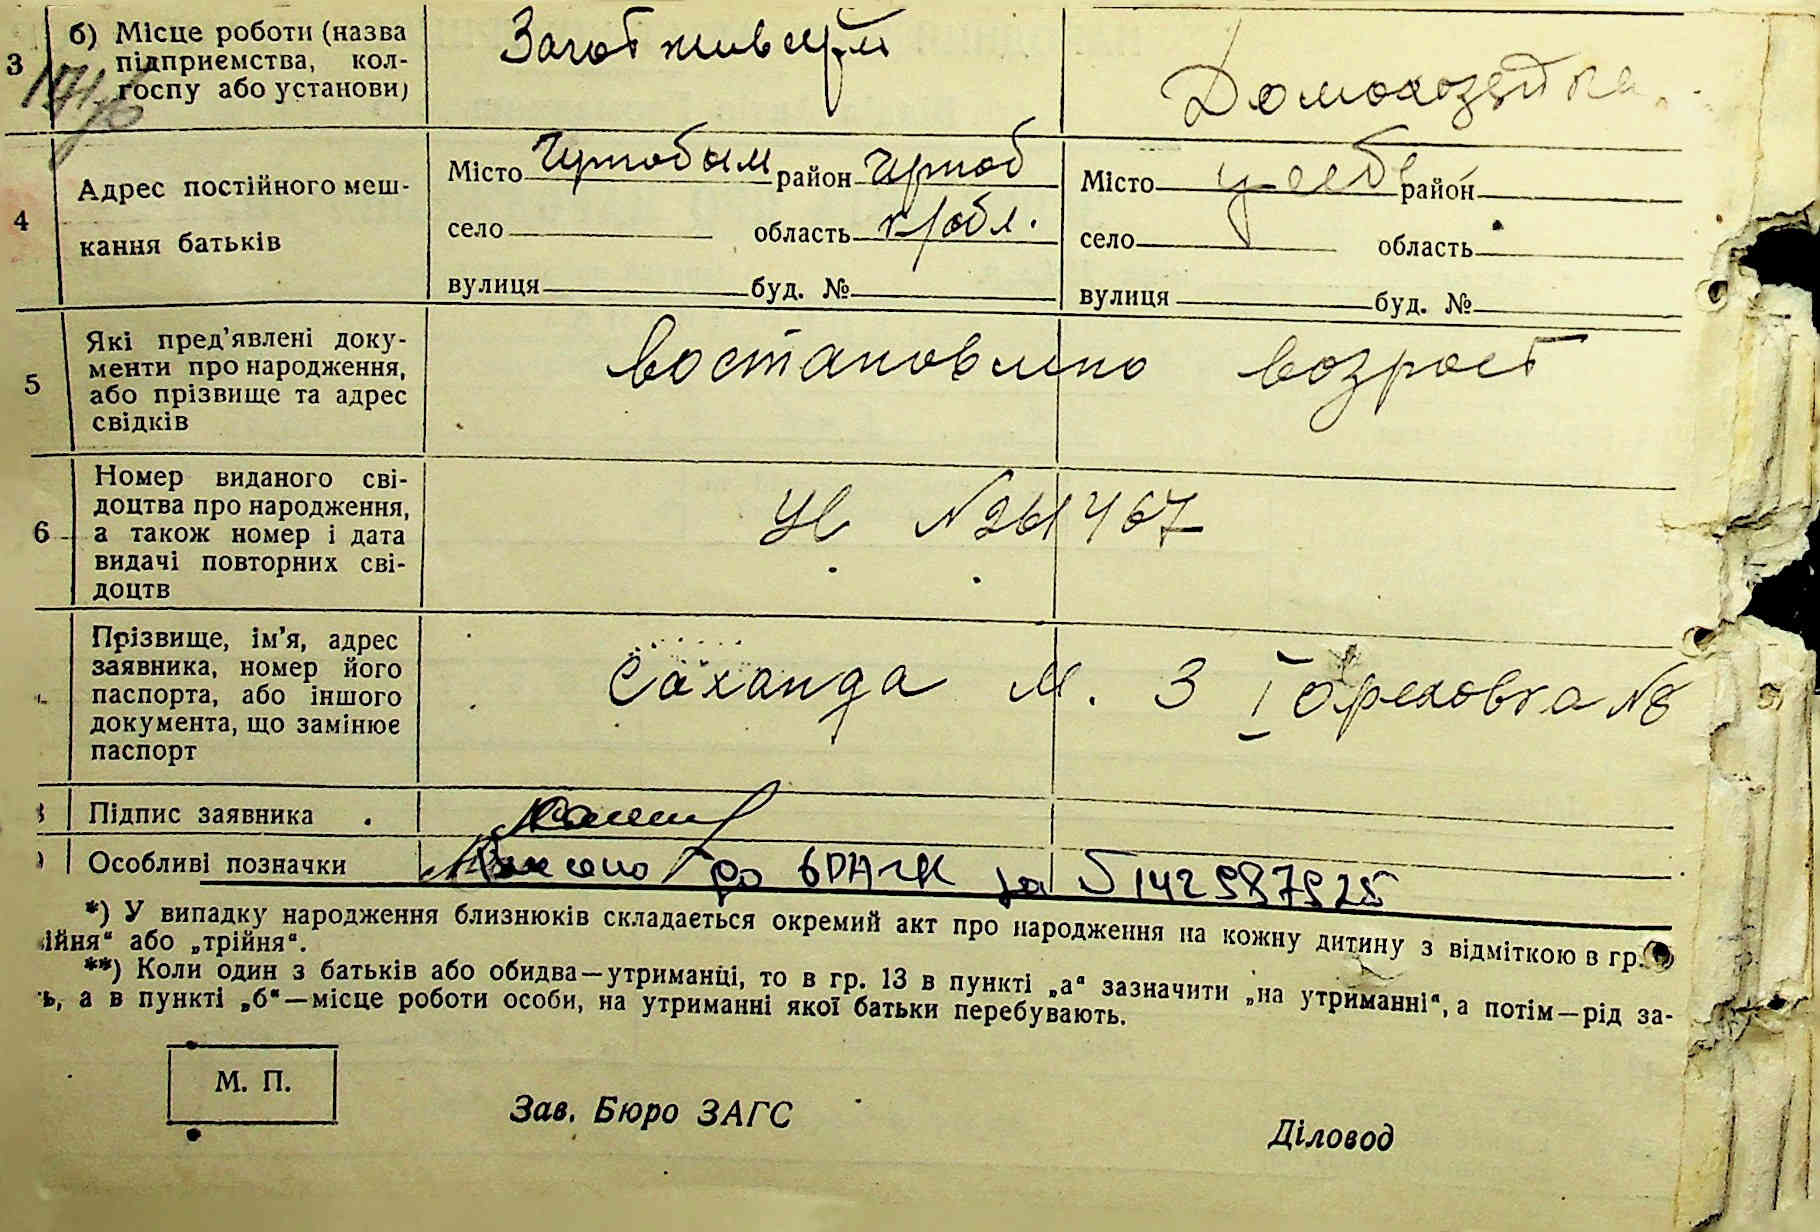 3
б) Місце роботи (назва
підприємства, кол-
госпу або установи)
Домохозяйка
4
Адрес постійного меш-
кання батьків
Місто Чернобыль район Черноб
село область к/обл.
вулиця буд. №
Місто район
село область
вулиця буд. №
5
Які пред’явлені доку-
менти про народження,
або прізвище та адрес
свідків
востановлено возраст
6
Номер виданого сві-
доцтва про народження,
а також номер і дата
видачі повторних сві-
доцтв
Прізвище, ім’я, адрес
заявника, номер його
паспорта, або іншого
документа, що замінює
паспорт
Саханда М. З
Підпис заявника
Особливі позначки
до за
*) У випадку народження близнюків складається окремий акт про народження на кожну дитину з відміткою в гр.
ійня“ або „трійня“.
**) Коли один з батьків або обидва—утриманці, то в гр. 13 в пункті „а“ зазначити „на утриманні“, а потім—рід за-
ь, а в пункті „б“—місце роботи особи, на утриманні якої батьки перебувають.
М. П.
Зав. Бюро ЗАГС
Діловод